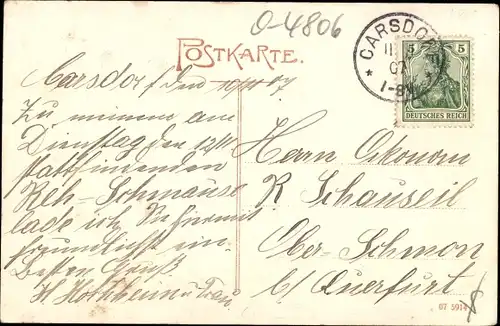 O-4806
POSTKARTE.
CARSDO
11
07
1-8
5 5
DEUTSCHES REICH
Carsdorf den 10/11 07
Zu meinem am
Dienstag den 12/11
stattfindenden
Reh-Schmause
lade ich Sie hiermit
freundlichst ein
Besten Gruß
H Hochheim u Frau
Herrn Oekonom
R Schauseil
Ober-Schmon
b/ Querfurt
07 5914